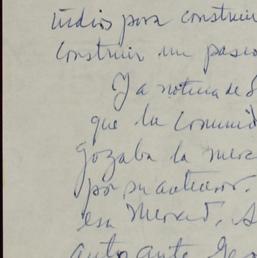 indios para construir
construir un paseo
Ya noticia de S
que la Comunid
gozaba la merc
por su anterior.
esa Merced, A
auto ante Ge